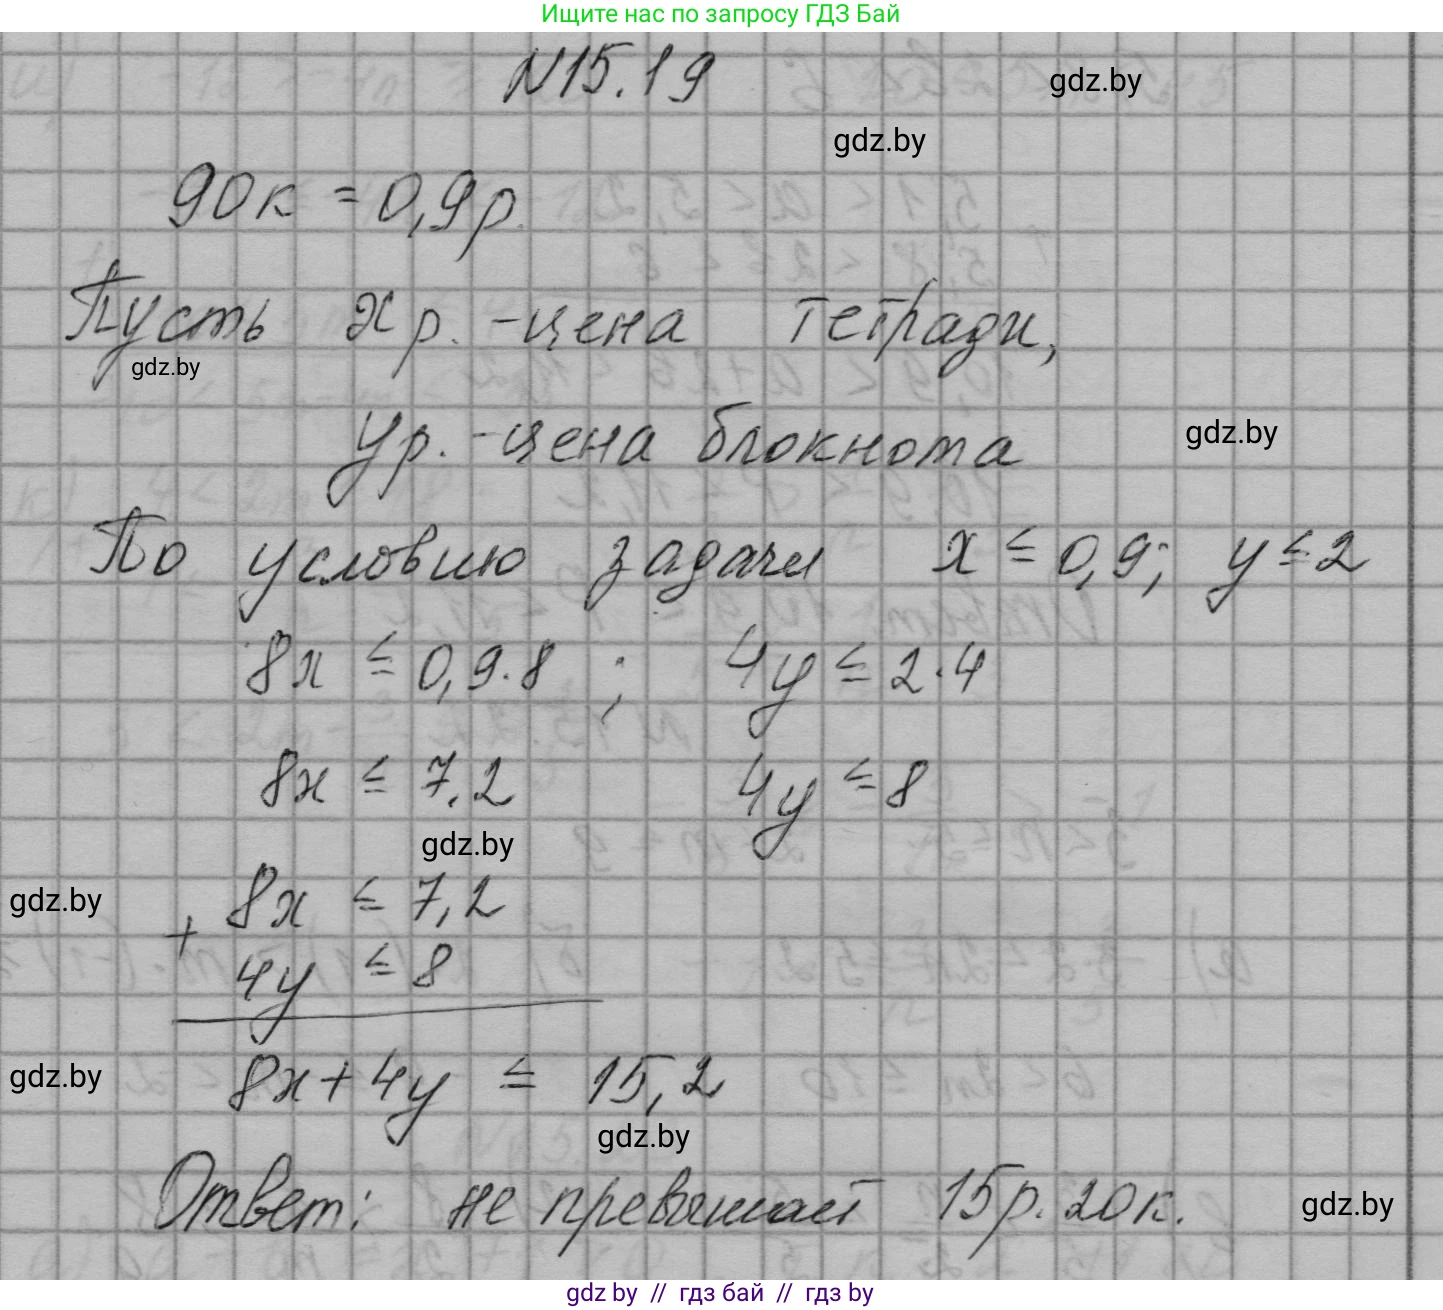 Ищите нас по запросу ГДЗ Бай
N15.19
gdz.by
gdz.by
90к = 0,9р.
Пусть х р. - цена тетради,
gdz.by
у р. - цена блокнота
gdz.by
По условию задачи х ≤ 0,9; у ≤ 2
8х ≤ 0,9·8 ; 4у ≤ 2·4
8х ≤ 7,2 4у ≤ 8
gdz.by
gdz.by
+ 8х ≤ 7,2
4у ≤ 8
gdz.by
8х+4у ≤ 15,2
gdz.by
Ответ: не превышает 15р. 20к.
gdz.by
gdz.by // гдз бай // гдз by